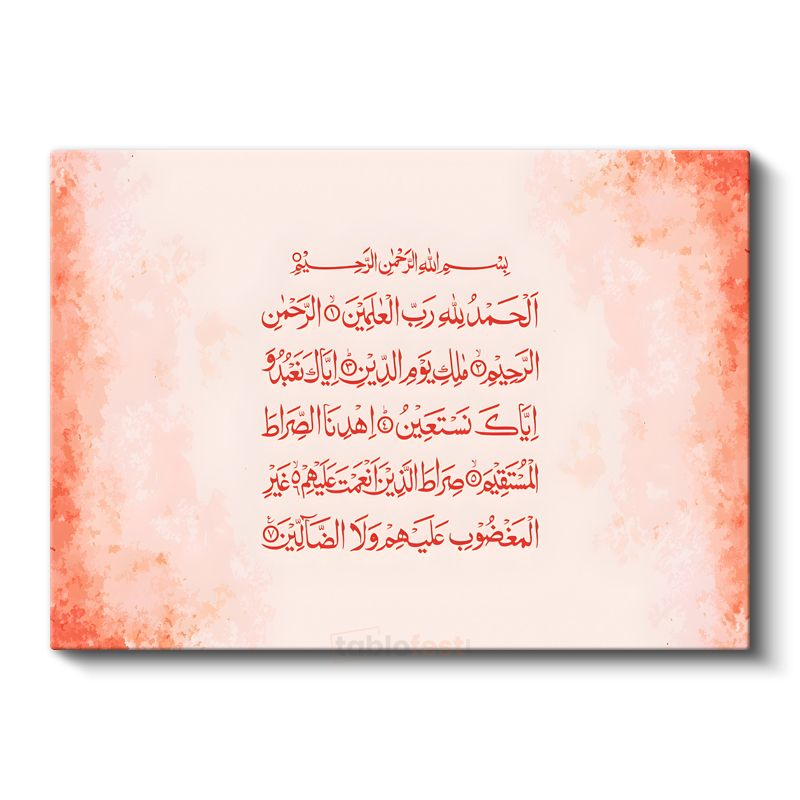 بِسْمِ اللهِ الرَّحْمٰنِ الرَّحِيْمِ
اَلْحَمْدُ لِلّٰهِ رَبِّ الْعٰلَمِيْنَ ١ الرَّحْمٰنِ
الرَّحِيْمِ ٢ مٰلِكِ يَوْمِ الدِّيْنِ ٣ اِيَّاكَ نَعْبُدُ وَ
اِيَّاكَ نَسْتَعِيْنُ ٤ اِهْدِنَا الصِّرَاطَ
الْمُسْتَقِيْمَ ٥ صِرَاطَ الَّذِيْنَ اَنْعَمْتَ عَلَيْهِمْ ٦ غَيْرِ
الْمَغْضُوْبِ عَلَيْهِمْ وَلَا الضَّآلِّيْنَ ٧
tablofest